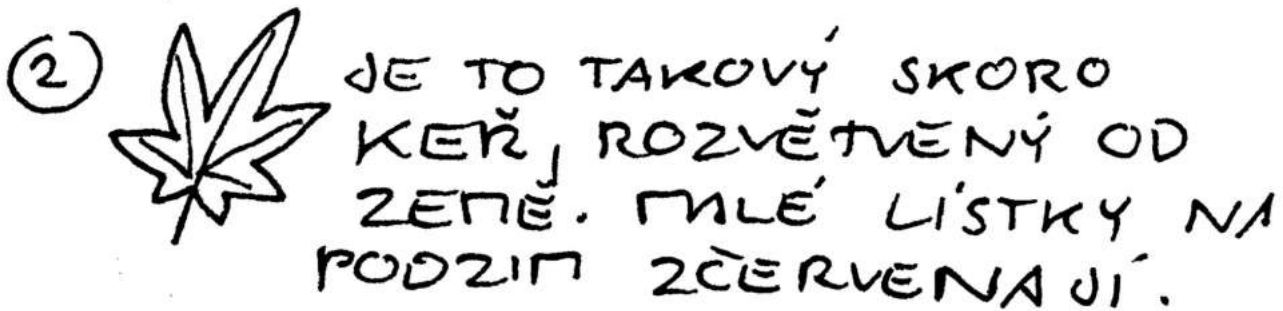 ② JE TO TAKOVÝ SKORO
KEŘ, ROZVĚTVENÝ OD
ZEMĚ. MALÉ LÍSTKY NA
PODZIM ZČERVENAJÍ.